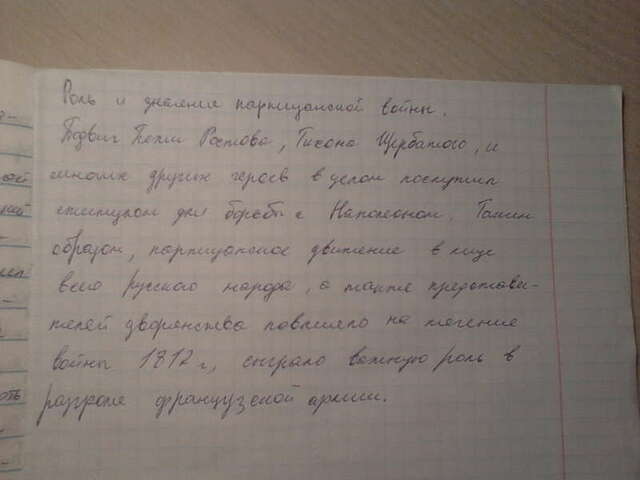 Роль и значение партизанской войны.
Подвиг Пети Ростова, Тихона Щербатого, и
многих других героев в целом послужил
стимулом для борьбы с Наполеоном. Таким
образом, партизанское движение в лице
всего русского народа, а также представи-
телей дворянства повлияло на течение
войны 1812 г., сыграло важную роль в
разгроме французской армии.